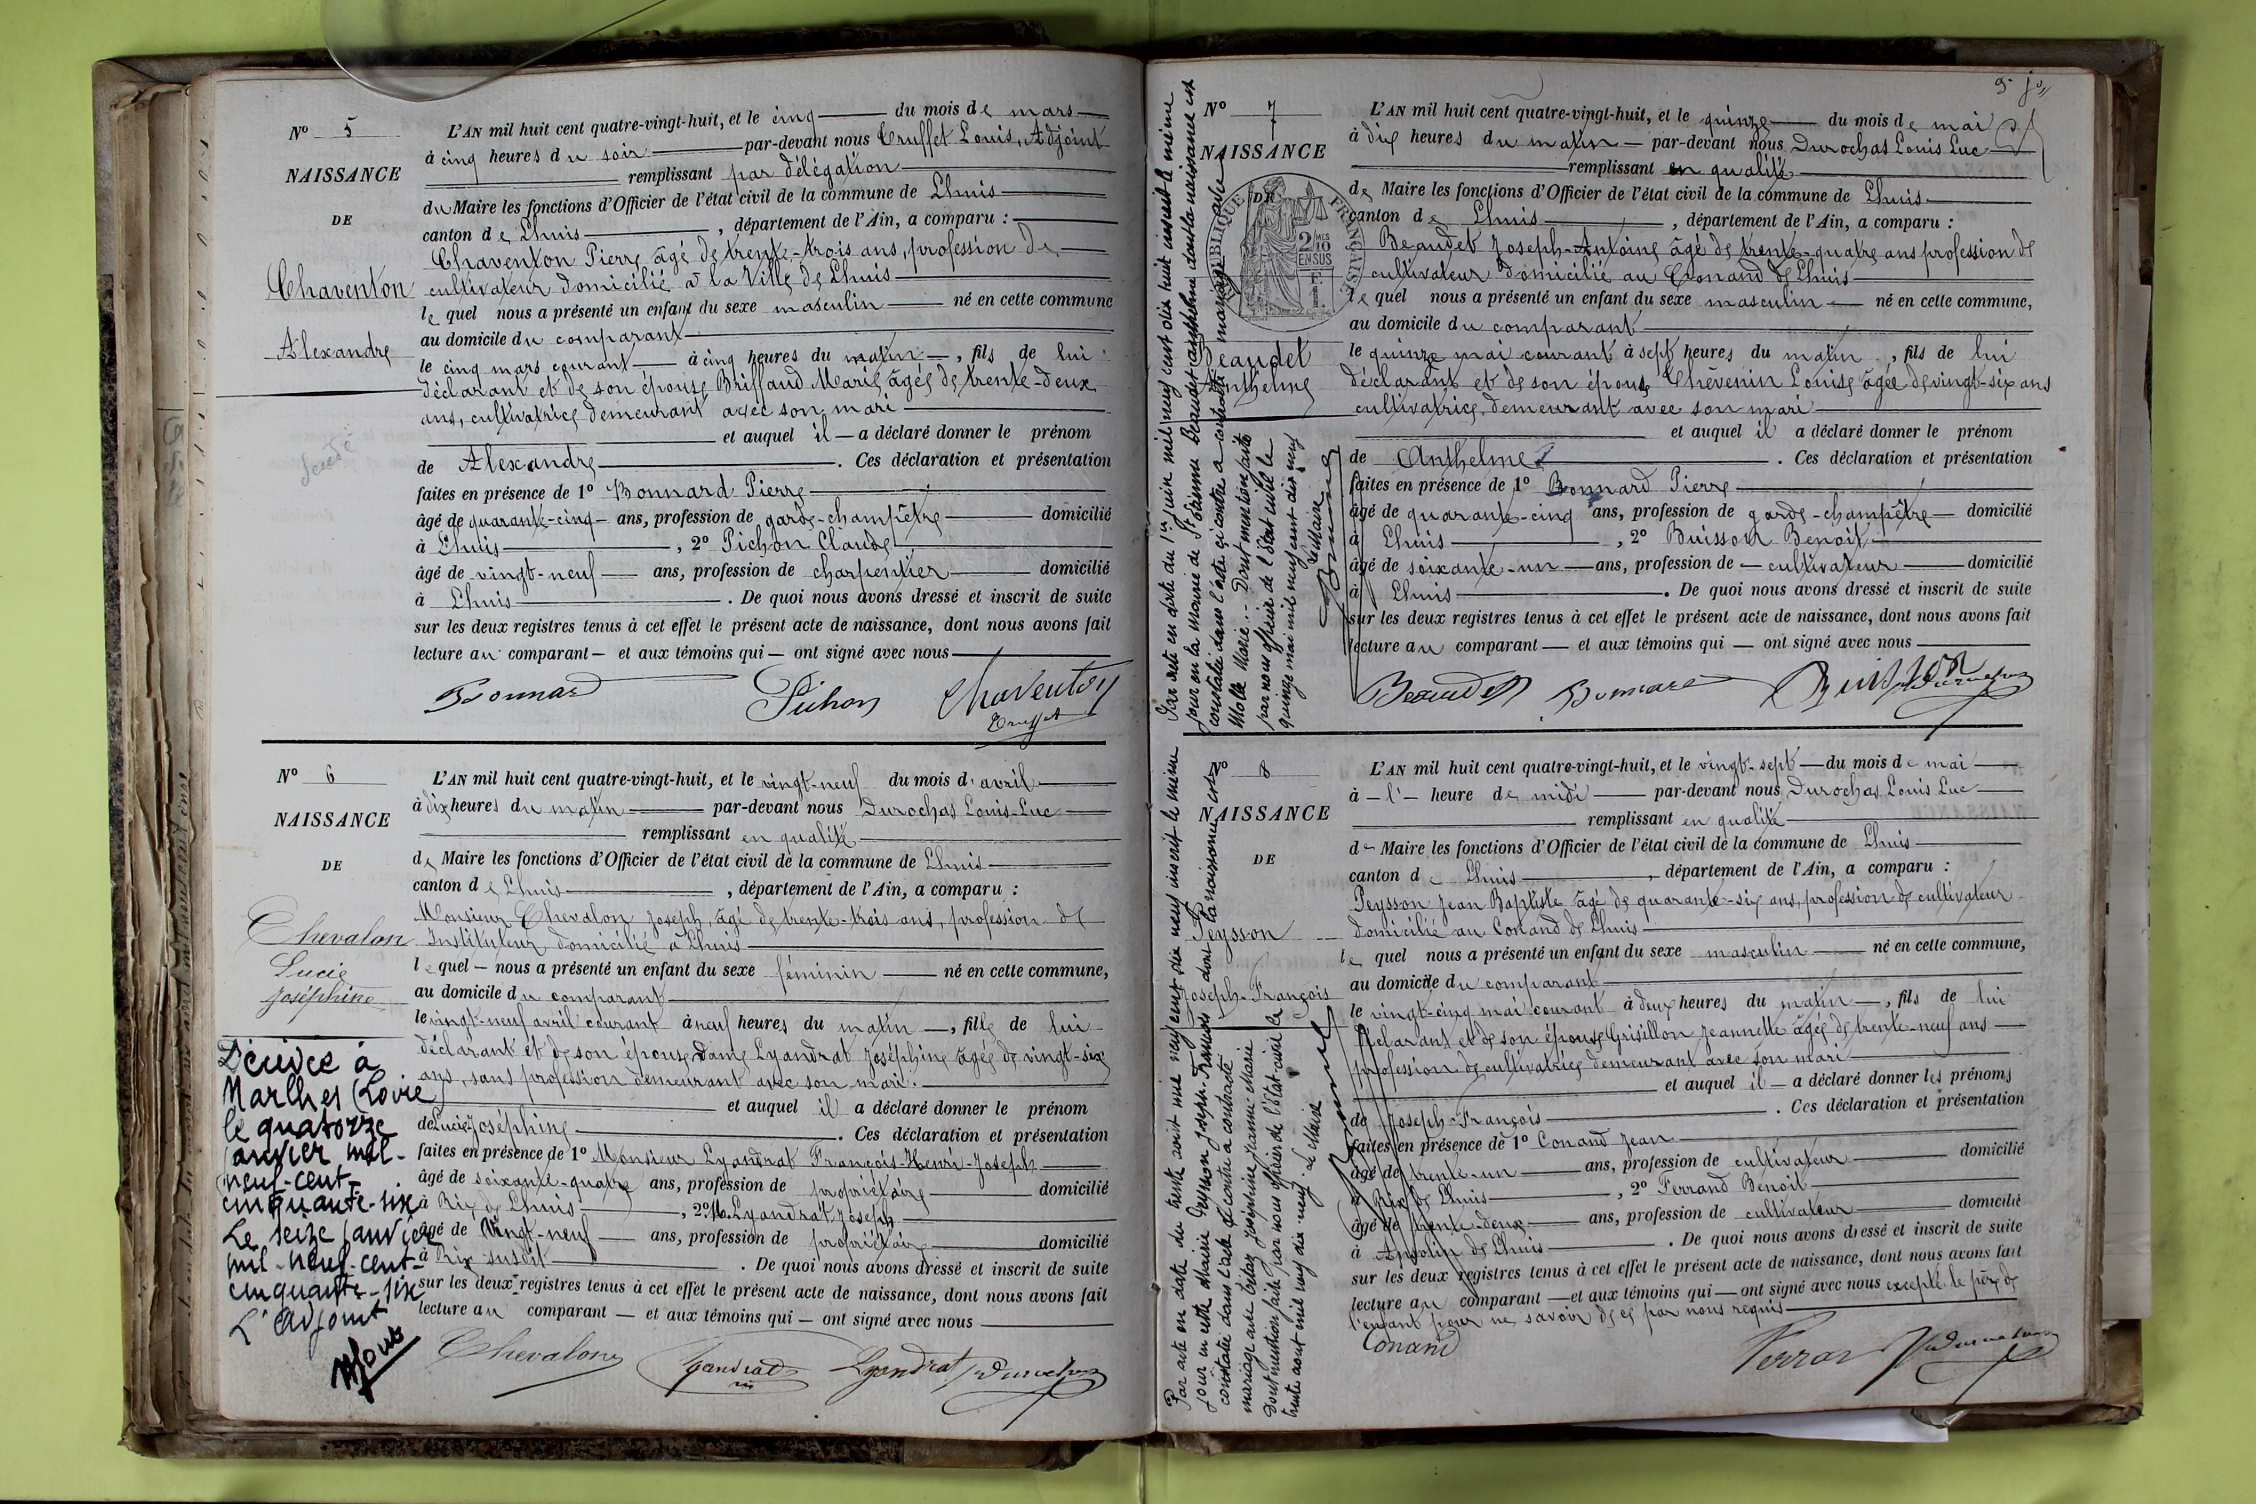 N° 5
NAISSANCE
DE
Chaventon
Alexandre
L'AN mil huit cent quatre-vingt-huit, et le cinq du mois de mars
à cinq heures du soir par-devant nous Truffet Louis, Adjoint
remplissant par délégation
du Maire les fonctions d'Officier de l'état civil de la commune de Lhuis
canton de Lhuis, département de l'Ain, a comparu :
Chaventon Pierre âgé de trente-trois ans, profession de
cultivateur domicilié à la Ville de Lhuis
lequel nous a présenté un enfant du sexe masculin né en cette commune
au domicile du comparant
le cinq mars courant à cinq heures du matin, fils de lui
déclarant et de son épouse Briffaud Marie âgée de trente-deux
ans, cultivatrice demeurant avec son mari
et auquel il a déclaré donner le prénom
de Alexandre. Ces déclaration et présentation
faites en présence de 1° Bonnard Pierre
âgé de quarante-cinq ans, profession de garde-champêtre domicilié
à Lhuis, 2° Pichon Claude
âgé de vingt-neuf ans, profession de charpentier domicilié
à Lhuis. De quoi nous avons dressé et inscrit de suite
sur les deux registres tenus à cet effet le présent acte de naissance, dont nous avons fait
lecture au comparant et aux témoins qui ont signé avec nous
Bonnard Pichon Chaventon
Truffet
N° 6
NAISSANCE
DE
Chevalon
Lucie
Joséphine
L'AN mil huit cent quatre-vingt-huit, et le vingt-neuf du mois d'avril
à dix heures du matin par-devant nous Durochas Louis-Luc
remplissant en qualité
de Maire les fonctions d'Officier de l'état civil de la commune de Lhuis
canton de Lhuis, département de l'Ain, a comparu :
Monsieur Chevalon Joseph, âgé de trente-trois ans, profession de
Instituteur domicilié à Lhuis
lequel nous a présenté un enfant du sexe féminin né en cette commune,
au domicile du comparant
le vingt-neuf avril courant à neuf heures du matin, fille de lui
déclarant et de son épouse Dame Lyandrat Joséphine âgée de vingt-six
ans, sans profession demeurant avec son mari.
et auquel il a déclaré donner le prénom
de Lucie Joséphine. Ces déclaration et présentation
faites en présence de 1° Monsieur Lyandrat François-Henri-Joseph
âgé de soixante-quatre ans, profession de propriétaire domicilié
à Rix de Lhuis, 2° M. Lyandrat Joseph
âgé de vingt-neuf ans, profession de propriétaire domicilié
à Rix susdit. De quoi nous avons dressé et inscrit de suite
sur les deux registres tenus à cet effet le présent acte de naissance, dont nous avons fait
lecture au comparant et aux témoins qui ont signé avec nous
Chevalon Lyandrat Lyandrat Durochas
Décédée à
Marlhes (Loire)
le quatorze
janvier mil-
neuf-cent-
cinquante-six
Le seize janvier
mil-neuf-cent-
cinquante-six
L'Adjoint
N° 7
NAISSANCE
DE
Beaudet
Anthelme
RÉPUBLIQUE FRANÇAISE
2 MES
10
EN SUS
L'AN mil huit cent quatre-vingt-huit, et le quinze du mois de mai
à dix heures du matin par-devant nous Durochas Louis Luc
remplissant en qualité
de Maire les fonctions d'Officier de l'état civil de la commune de Lhuis
canton de Lhuis, département de l'Ain, a comparu :
Beaudet Joseph-Antoine âgé de trente-quatre ans profession de
cultivateur domicilié au Conand de Lhuis
lequel nous a présenté un enfant du sexe masculin né en cette commune,
au domicile du comparant
le quinze mai courant à sept heures du matin, fils de lui
déclarant et de son épouse Thévenin Louise âgée de vingt-six ans
cultivatrice, demeurant avec son mari
et auquel il a déclaré donner le prénom
de Anthelme. Ces déclaration et présentation
faites en présence de 1° Bonnard Pierre
âgé de quarante-cinq ans, profession de garde-champêtre domicilié
à Lhuis, 2° Buisson Benoit
âgé de soixante-un ans, profession de cultivateur domicilié
à Lhuis. De quoi nous avons dressé et inscrit de suite
sur les deux registres tenus à cet effet le présent acte de naissance, dont nous avons fait
lecture au comparant et aux témoins qui ont signé avec nous
Beaudet Bonnard Buisson Durochas
Par acte en date du 1er juin mil neuf cent dix huit inscrit le même
jour en la mairie de St Etienne Beaudet Anthelme dont la naissance est
constatée dans l'acte ci contre a contracté mariage avec
Molle Marie. Dont mention faite
par nous officier de l'Etat civil le
quinze mai mil neuf cent dix neuf
Le Maire
N° 8
NAISSANCE
DE
Peysson
Joseph-François
L'AN mil huit cent quatre-vingt-huit, et le vingt-sept du mois de mai
à l' heure de midi par-devant nous Durochas Louis Luc
remplissant en qualité
de Maire les fonctions d'Officier de l'état civil de la commune de Lhuis
canton de Lhuis, département de l'Ain, a comparu :
Peysson Jean Baptiste âgé de quarante-six ans, profession de cultivateur
domicilié au Conand de Lhuis
le quel nous a présenté un enfant du sexe masculin né en cette commune,
au domicile du comparant
le vingt-cinq mai courant à deux heures du matin, fils de lui
déclarant et de son épouse Grisillon Jeannette âgée de trente-neuf ans
profession de cultivatrice demeurant avec son mari
et auquel il a déclaré donner les prénoms
de Joseph-François. Ces déclaration et présentation
faites en présence de 1° Conand Jean
âgé de trente-un ans, profession de cultivateur domicilié
à Rix de Lhuis, 2° Ferrand Benoit
âgé de trente-deux ans, profession de cultivateur domicilié
à Ansolin de Lhuis. De quoi nous avons dressé et inscrit de suite
sur les deux registres tenus à cet effet le présent acte de naissance, dont nous avons fait
lecture au comparant et aux témoins qui ont signé avec nous excepté le père de
l'enfant pour ne savoir de ce par nous requis
Conand Ferrand Durochas
Par acte en date du trente août mil neuf cent dix neuf inscrit le même
jour en cette Mairie Peysson Joseph-François dont la naissance est
constatée dans l'acte ci contre a contracté
mariage avec Joséphine Jeanne-Marie
Dont mention faite par nous officier de l'Etat-civil le
trente août mil neuf dix-neuf. Le Maire